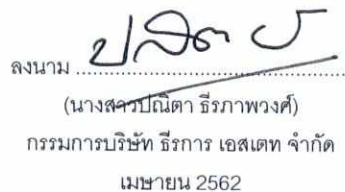 ลงนาม ..........................................
(นางสาวปณิตา ธีรภาพวงศ์)
กรรมการบริษัท ธีรการ เอสเตท จำกัด
เมษายน 2562